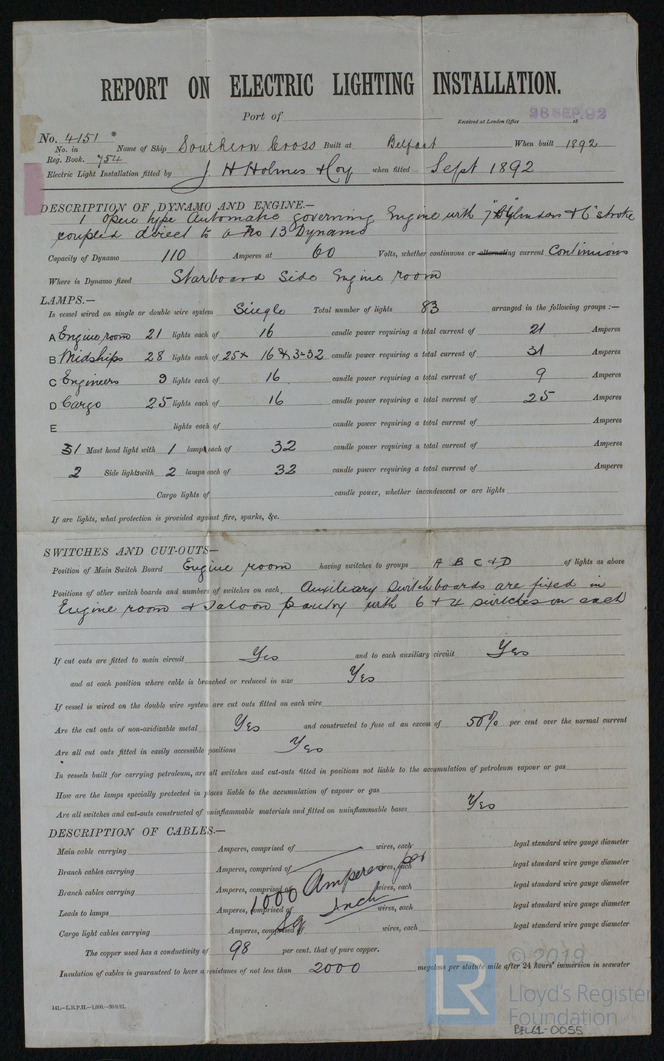 REPORT ON ELECTRIC LIGHTING INSTALLATION.
Port of
Received at London Office 28 SEP. 92 18
No. 4151
No. in Reg. Book. 754 Name of Ship Southern Cross Built at Belfast When built 1892
Electric Light Installation fitted by J H Holmes & Coy when fitted Sept 1892
DESCRIPTION OF DYNAMO AND ENGINE.—
1 open type Automatic governing Engine with 7" Cylinders & 6" stroke
coupled direct to a No 13 Dynamo
Capacity of Dynamo 110 Amperes at 60 Volts, whether continuous or alternating current Continuous
Where is Dynamo fixed Starboard Side Engine room
LAMPS.—
Is vessel wired on single or double wire system Single Total number of lights 83 arranged in the following groups :—
A Engine room 21 lights each of 16 candle power requiring a total current of 21 Amperes
B Midships 28 lights each of 25 x 16 & 3-32 candle power requiring a total current of 31 Amperes
C Engineers 9 lights each of 16 candle power requiring a total current of 9 Amperes
D Cargo 25 lights each of 16 candle power requiring a total current of 25 Amperes
E lights each of candle power requiring a total current of Amperes
1 Mast head light with 1 lamps each of 32 candle power requiring a total current of Amperes
2 Side lights with 2 lamps each of 32 candle power requiring a total current of Amperes
Cargo lights of candle power, whether incandescent or arc lights
If arc lights, what protection is provided against fire, sparks, &c.
SWITCHES AND CUT-OUTS—
Position of Main Switch Board Engine room having switches to groups A B C & D of lights as above
Positions of other switch boards and numbers of switches on each, Auxiliary Switchboards are fixed in
Engine room & Saloon pantry with 6 & 4 switches on each
If cut outs are fitted to main circuit Yes and to each auxiliary circuit Yes
and at each position where cable is branched or reduced in size Yes
If vessel is wired on the double wire system are cut outs fitted on each wire
Are the cut outs of non-oxidizable metal Yes and constructed to fuse at an excess of 50% per cent over the normal current
Are all cut outs fitted in easily accessible positions Yes
In vessels built for carrying petroleum, are all switches and cut-outs fitted in positions not liable to the accumulation of petroleum vapour or gas
How are the lamps specially protected in places liable to the accumulation of vapour or gas
Are all switches and cut-outs constructed of uninflammable materials and fitted on uninflammable bases Yes
DESCRIPTION OF CABLES.—
Main cable carrying Amperes, comprised of wires, each legal standard wire gauge diameter
Branch cables carrying Amperes, comprised of wires, each legal standard wire gauge diameter
Branch cables carrying Amperes, comprised of wires, each legal standard wire gauge diameter
Leads to lamps Amperes, comprised of wires, each legal standard wire gauge diameter
Cargo light cables carrying Amperes, comprised of wires, each legal standard wire gauge diameter
1000 Amperes per
Sq Inch
The copper used has a conductivity of 98 per cent. that of pure copper.
Insulation of cables is guaranteed to have a resistance of not less than 2000 megohms per statute mile after 24 hours' immersion in seawater
LR © 2019
Lloyd's Register
Foundation
BFL61-0055